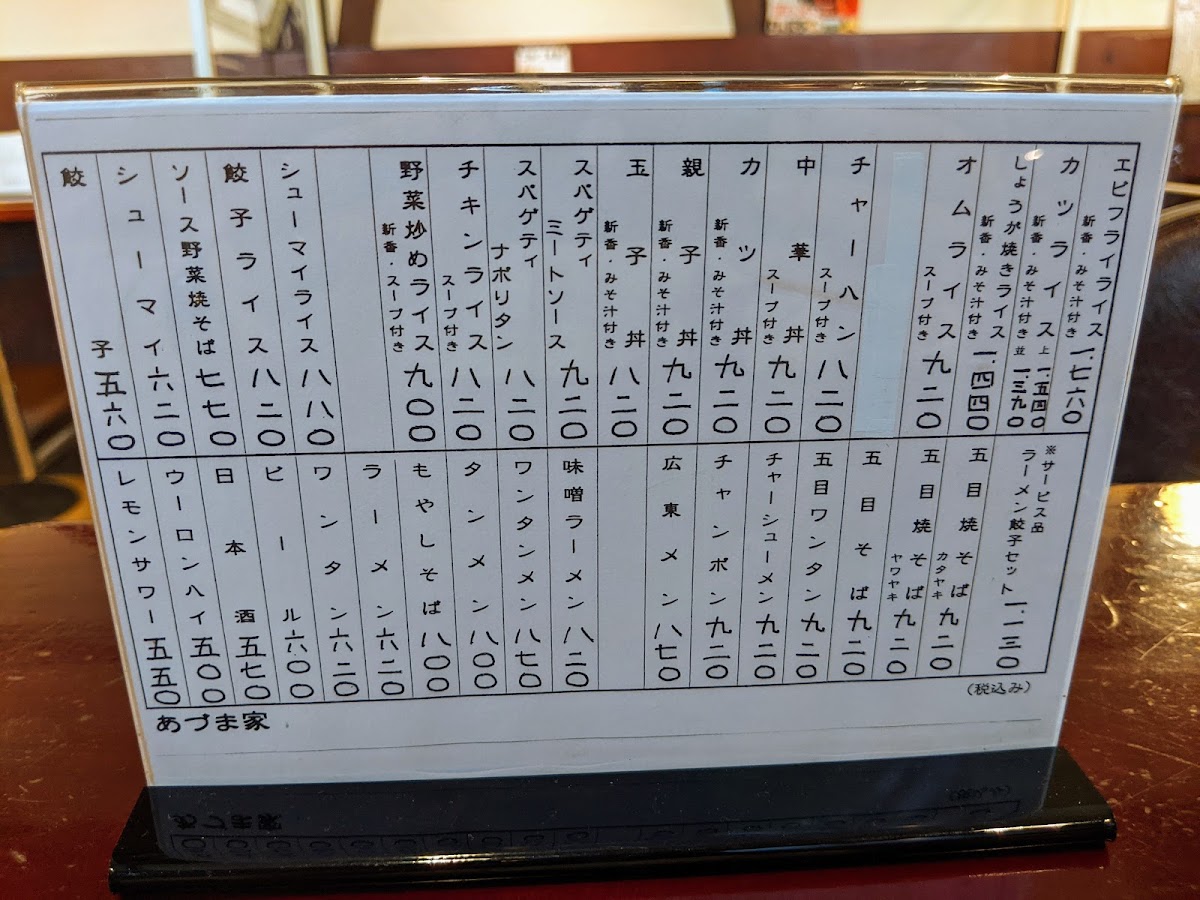 エビフライライス 一.七六〇
新香・みそ汁付き
カツライス 上 一.五四〇
新香・みそ汁付き 並 一.三九〇
しょうが焼きライス 一.四四〇
新香・みそ汁付き
オムライス 九二〇
スープ付き
チャーハン 八二〇
スープ付き
中華丼 九二〇
スープ付き
カツ丼 九二〇
新香・みそ汁付き
親子丼 九二〇
新香・みそ汁付き
玉子丼 八二〇
新香・みそ汁付き
スパゲティ
ミートソース 九二〇
スパゲティ
ナポリタン 八二〇
チキンライス 八二〇
スープ付き
野菜炒めライス 九〇〇
新香・スープ付き
シューマイライス 八八〇
餃子ライス 八二〇
ソース野菜焼そば 七七〇
シューマイ 六二〇
餃子 五六〇
※サービス品
ラーメン餃子セット 一.一三〇
五目焼そば 九二〇
カタヤキ
五目焼そば 九二〇
ヤワヤキ
五目そば 九二〇
五目ワンタン 九二〇
チャーシューメン 九二〇
チャンポン 九二〇
広東メン 八七〇
味噌ラーメン 八二〇
ワンタンメン 八七〇
タンメン 八〇〇
もやしそば 八〇〇
ラーメン 六二〇
ワンタン 六二〇
ビール 六〇〇
日本酒 五七〇
ウーロンハイ 五〇〇
レモンサワー 五五〇
(税込み)
あづま家